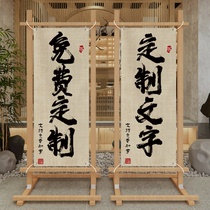 免费定制
定制文字